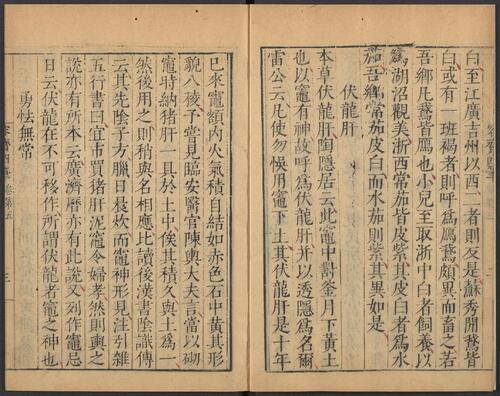 白至江廣吉州以西二者則反是蘇秀間鵞皆
白或有一班褐者則呼為鴈鵞頗異而畜之若
吾鄉凡鵞皆鴈也小兒至取浙中白者飼養以
為湖沼觀美浙西常茄皆皮紫其皮白者為水
茄吾鄉常茄皮白而水茄則紫其異如是
伏龍肝
本草伏龍肝陶隱居云此竈中對釜月下黃土
也以竈有神故呼為伏龍肝并以透隱為名爾
雷公云凡使勿悮用竈下土其伏龍肝是十年
已來竈額內火氣積自結如赤色石中黃其形
貌八稜予嘗見臨安醫官陳輿大夫言當以砌
竈時納猪肝一具於土中俟其積久與土為一
然後用之則稍與名相應比讀後漢書陰識傳
云其先陰子方臘日晨炊而竈神形見注引雜
五行書曰宜市買猪肝泥竈令婦孝然則輿之
說亦有所本云廣濟曆亦有此說又列作竈忌
日云伏龍在不可移作所謂伏龍者竈之神也
勇怯無常